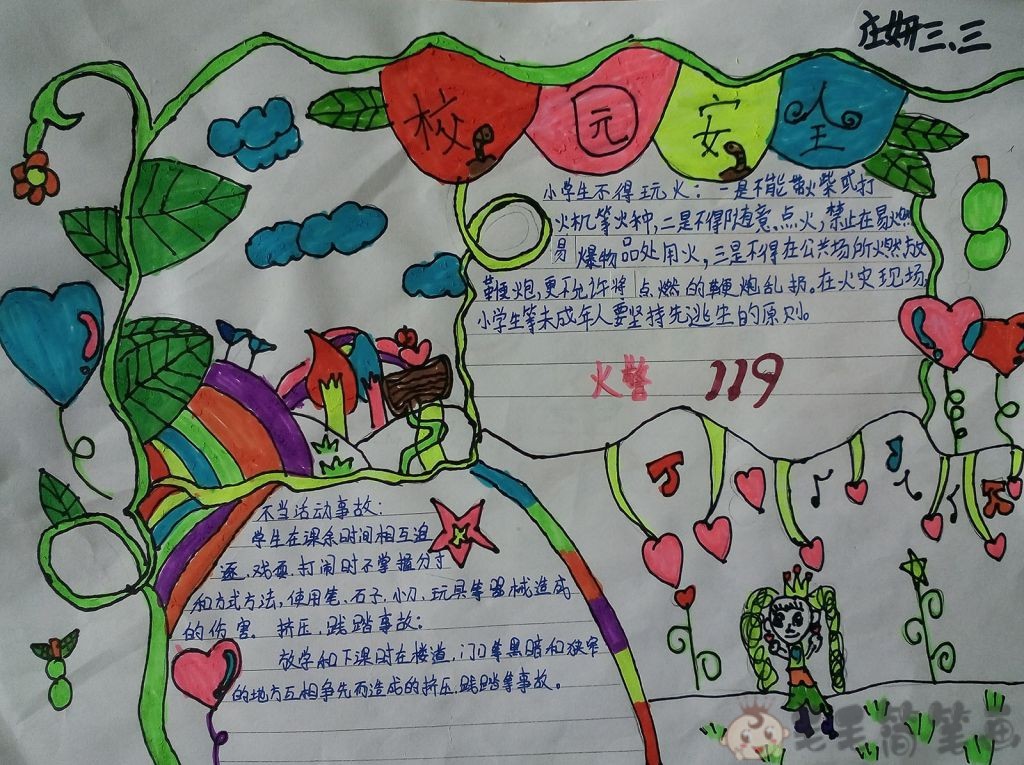 庄妍三、三
校园安全
小学生不得玩火：一是不能带火柴或打
火机等火种，二是不得随意点火，禁止在易燃
易爆物品处用火，三是不得在公共场所燃放
鞭炮，更不允许将点燃的鞭炮乱扔。在火灾现场
小学生等未成年人要坚持先逃生的原则。
火警 119
不当活动事故：
学生在课余时间相互追
逐、戏耍、打闹时不掌握分寸
和方式方法，使用笔、石子、小刀、玩具等器械造成
的伤害。挤压、践踏事故：
放学和下课时在楼道，门口等黑暗和狭窄
的地方互相争先而造成的挤压、践踏等事故。
老王简笔画